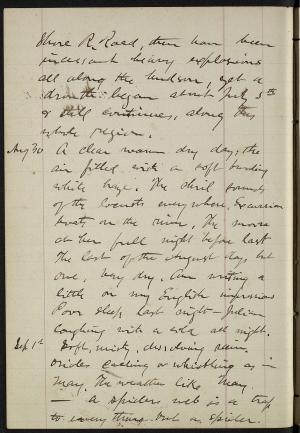 Shore R. Road, there have been
incessant heavy explosions
all along the Hudson, yet a
drouth began about July 5th
& still continues, along this
whole region.
Aug 30 A clear warm dry day; the
air filled with a soft
white haze. The shril sounds
of the locusts everywhere, Excursion
boats on the river. The moon
at her full night before last
The last of the August days, but
one. Very dry. Am writing a
little on my English impressions
Poor sleep last night - Julian
coughing with a cold all night.
Sep 1st Soft, misty, dissolving rain,
orioles calling or whistling as in
May. The weather like May.
— A spiders web is a trap
to everything but a spider.